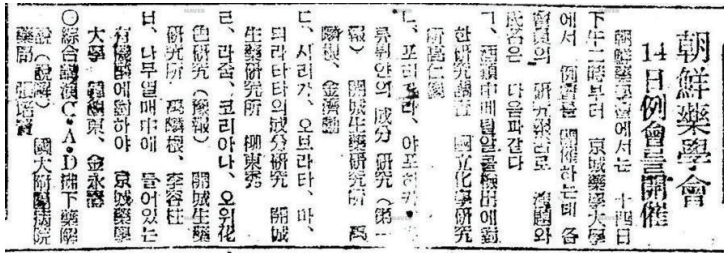 朝鮮藥學會
14日例會를開催
朝鮮藥學會에서는 十四日
下午二時부터 京城藥學大學
에서 例會를 開催하는데 各
會員의 研究報告로 演題와
氏名은 다음과같다
ㄱ、酒類中메틸알콜檢出에對
한研究 國立化學研究
所高仁錫
ㄴ、포리
류뮈안의 成分 研究(第一
報) 開城生藥研究所 禹
麟根、金濟勳
ㄷ、시리가、오브라타、마、
띄라타타의成分研究 開城
生藥研究所 柳東秀
ㄹ、라줌、코리아나、오위花
色研究(豫報) 開城生藥
研究所 禹麟根、李容柱
ㅁ、나무열매中에 들어있는
有機燐에對하야 京城藥學
大學 東、金永
○綜合講演C·A·D拂下藥解
說(說解) 國大附屬病院
藥局 張